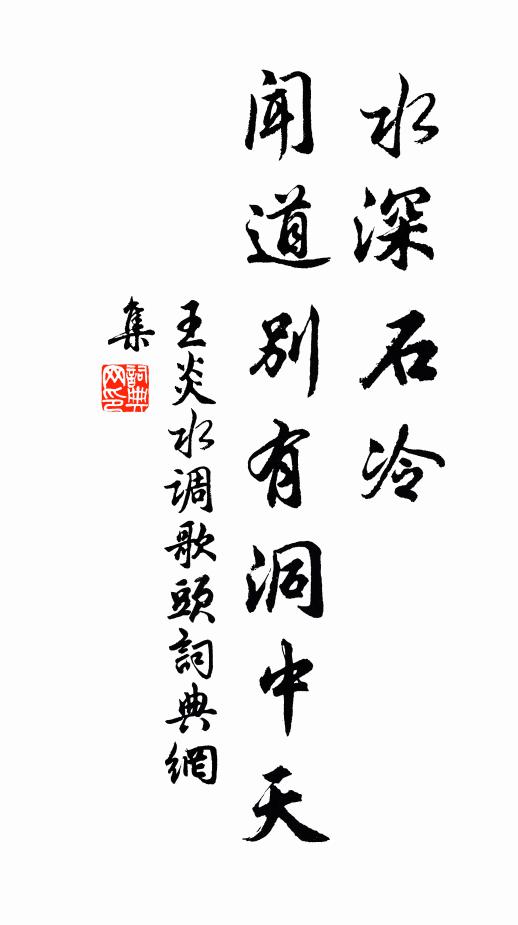 水深石冷
闻道别有洞中天
王炎水调歌头詞典網
集
詞典网印